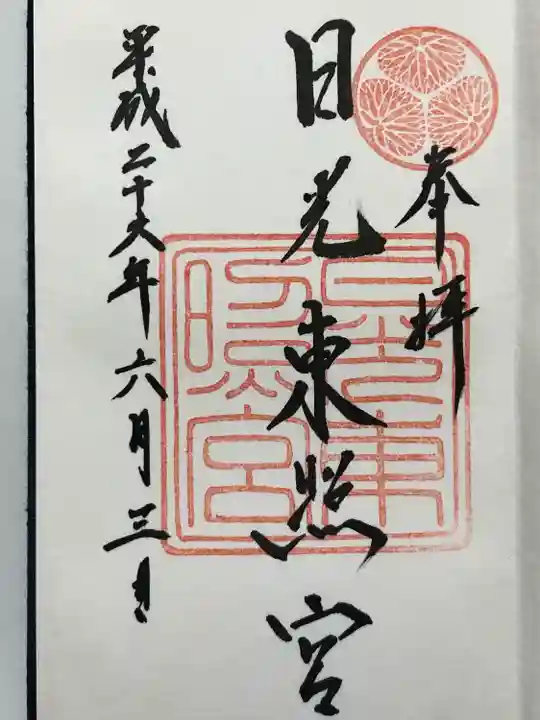 奉拝
日光東照宮
平成二十六年六月三日
日光東照宮